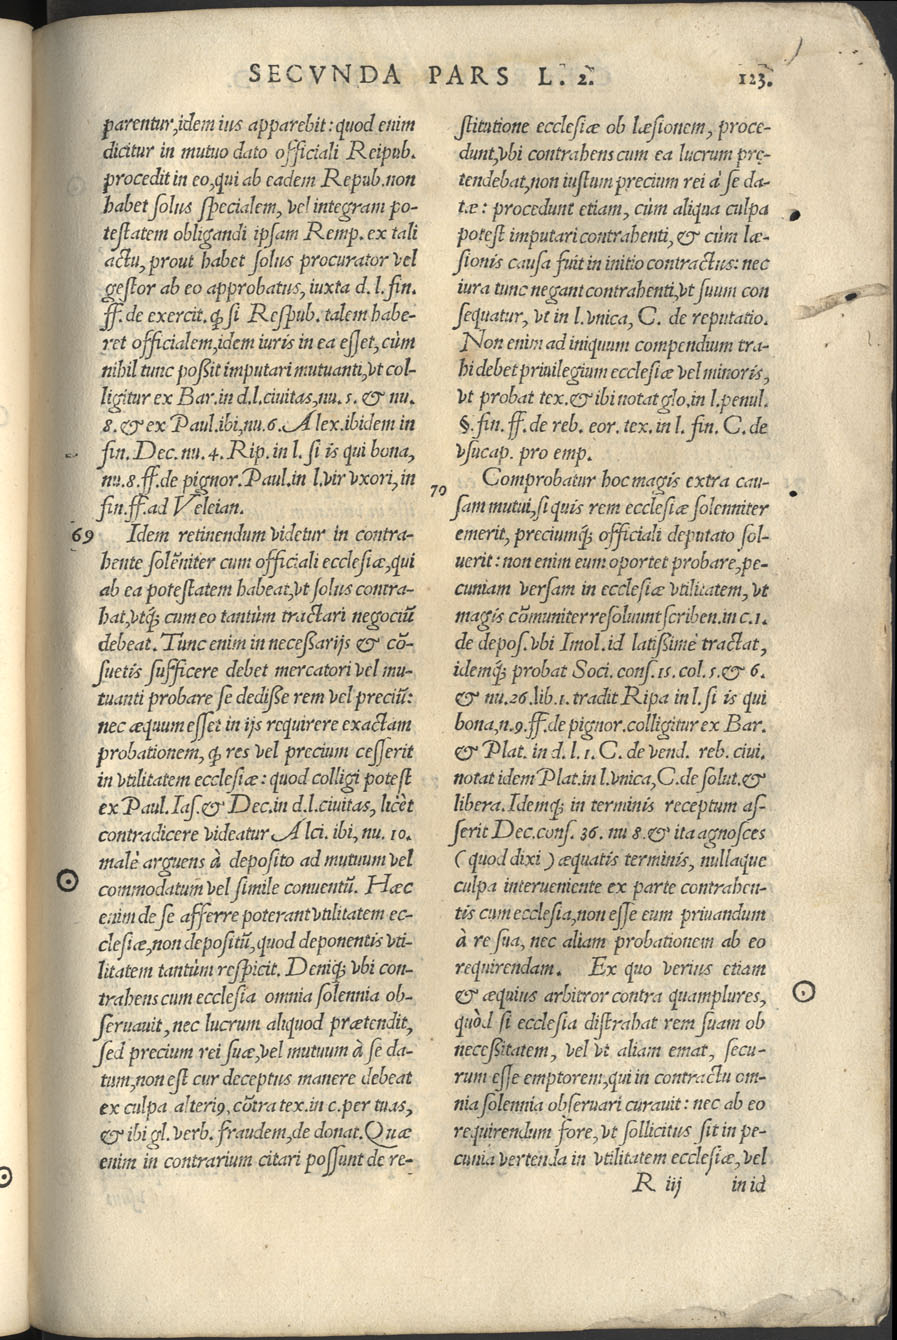 SECVNDA PARS L. 2. 123.
parentur, idem ius apparebit: quod enim
dicitur in mutuo dato officiali Reipub.
procedit in eo, qui ab eadem Repub. non
habet solus specialem, vel integram po-
testatem obligandi ipsam Remp. ex tali
actu, prout habet solus procurator vel
gestor ab eo approbatus, iuxta d. l. fin.
ff. de exercit. ꝙ si Respub. talem habe-
ret officialem, idem iuris in ea esset, cùm
nihil tunc poßit imputari mutuanti, vt col-
ligitur ex Bar. in d. l. ciuitas, nu. 5. & nu.
8. & ex Paul. ibi, nu. 6. Alex. ibidem in
fin. Dec. nu. 4. Rip. in l. si is qui bona,
nu. 8. ff. de pignor. Paul. in l. vir vxori, in
fin. ff. ad Veleian.
69 Idem retinendum videtur in contra-
hente solẽniter cum officiali ecclesiæ, qui
ab ea potestatem habeat, vt solus contra-
hat, vtq́; cum eo tantùm tractari negociũ
debeat. Tunc enim in necessarijs & cõ-
suetis sufficere debet mercatori vel mu-
tuanti probare se dedisse rem vel preciũ:
nec æquum esset in ijs requirere exactam
probationem, ꝙ res vel precium cesserit
in vtilitatem ecclesiæ: quod colligi potest
ex Paul. Ias. & Dec. in d. l. ciuitas, licèt
contradicere videatur Alci. ibi, nu. 10.
malè arguens à deposito ad mutuum vel
commodatum vel simile conuentũ. Hæc
enim de se afferre poterant vtilitatem ec-
clesiæ, non depositũ, quod deponentis vti-
litatem tantùm respicit. Deniq́; vbi con-
trahens cum ecclesia omnia solennia ob-
seruauit, nec lucrum aliquod prætendit,
sed precium rei suæ, vel mutuum à se da-
tum, non est cur deceptus manere debeat
ex culpa alteriꝰ, cõtra tex. in c. per tuas,
& ibi gl. verb. fraudem, de donat. Quæ
enim in contrarium citari possunt de re-
stitutione ecclesiæ ob læsionem, proce-
dunt, vbi contrahens cum ea lucrum prę-
tendebat, non iustum precium rei à se da-
tæ: procedunt etiam, cùm aliqua culpa
potest imputari contrahenti, & cùm læ-
sionis causa fuit in initio contractus: nec
iura tunc negant contrahenti, vt suum con
sequatur, vt in l. vnica, C. de reputatio.
Non enim ad iniquum compendium tra-
hi debet priuilegium ecclesiæ vel minoris,
vt probat tex. & ibi notat glo. in l. penul.
§. fin. ff. de reb. eor. tex. in l. fin. C. de
vsucap. pro emp.
70 Comprobatur hoc magis extra cau-
sam mutui, si quis rem ecclesiæ solenniter
emerit, preciumq́; officiali deputato sol-
uerit: non enim eum oportet probare, pe-
cuniam versam in ecclesiæ vtilitatem, vt
magis cõmuniter resoluunt scriben. in c. 1.
de depos. vbi Imol. id latissimè tractat,
idemq́; probat Soci. cons. 15. col. 5. & 6.
& nu. 26. lib. 1. tradit Ripa in l. si is qui
bona, n. 9. ff. de pignor. colligitur ex Bar.
& Plat. in d. l. 1. C. de vend. reb. ciui.
notat idem Plat. in l. vnica, C. de solut. &
libera. Idemq́; in terminis receptum as-
serit Dec. cons. 36. nu 8. & ita agnosces
(quod dixi) æquatis terminis, nullaque
culpa interueniente ex parte contrahen-
tis cum ecclesia, non esse eum priuandum
à re sua, nec aliam probationem ab eo
requirendam. Ex quo verius etiam
& æquius arbitror contra quamplures,
quòd si ecclesia distrahat rem suam ob
necessitatem, vel vt aliam emat, secu-
rum esse emptorem, qui in contractu om-
nia solennia obseruari curauit: nec ab eo
requirendum fore, vt sollicitus sit in pe-
cunia vertenda in vtilitatem ecclesiæ, vel
R iij in id